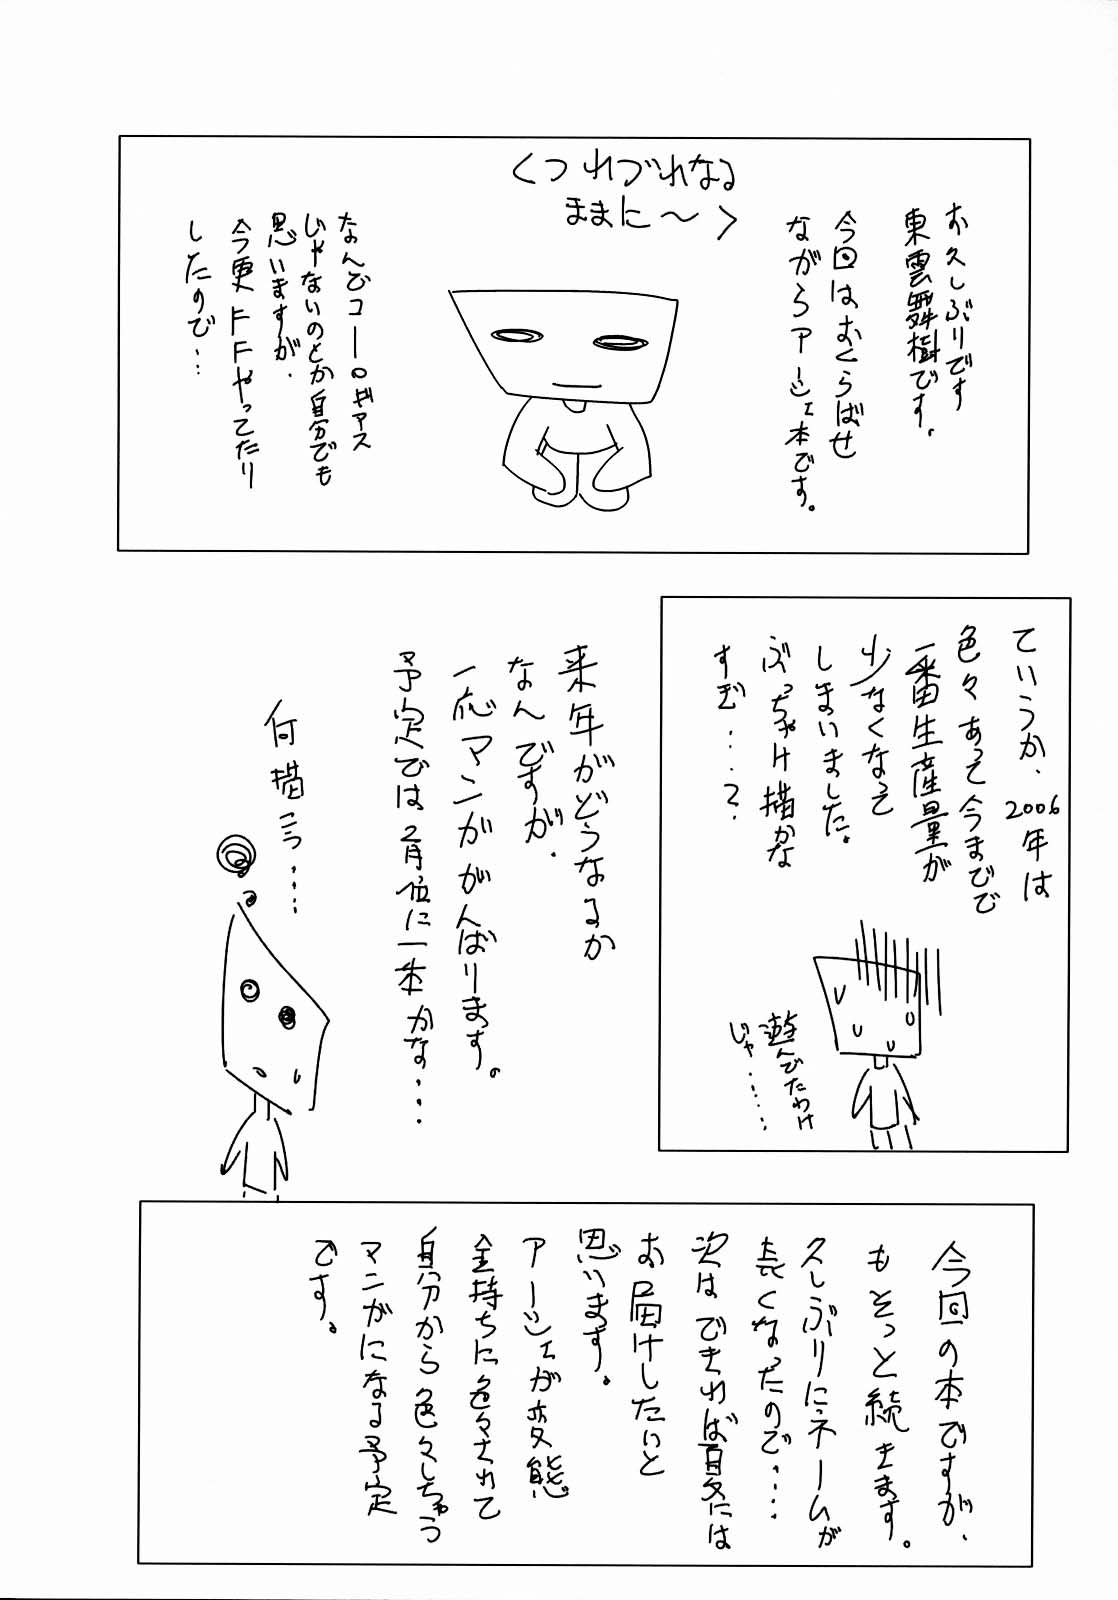 くつれづれなる
ままに〜＞
お久しぶりです
東雲舞樹です。
今回はおくらばせ
ながらアーシェ本です。
なんでコーロギアス
じゃないのとか自分でも
思いますが、
今更FFやってたり
したので…
ていうか、2006年は
色々あって今までで
一番生産量が
少なくなって
しまいました。
ぶっちゃけ描かな
すぎ…？
遊んでたわけ
じゃ……
来年がどうなるか
なんですが、
一応マンガがんばります。
予定では2月位に一本かな…
何描こう…
今回の本ですが、
もそっと続きます。
久しぶりにネームが
長くなったので…
次はできれば夏には
お届けしたいと
思います。
アーシェが変態
金持ちに色々されて
自分から色々しちゃう
マンガになる予定
です。